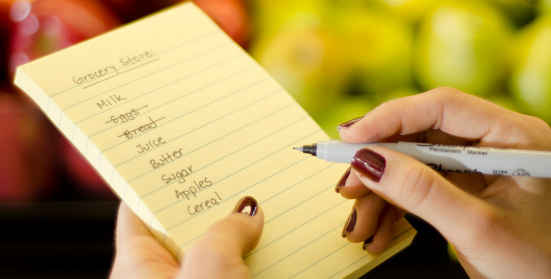 Grocery Store!
Milk
Eggs
Bread
Juice
Butter
Sugar
Apples
Cereal
Permanent Marker